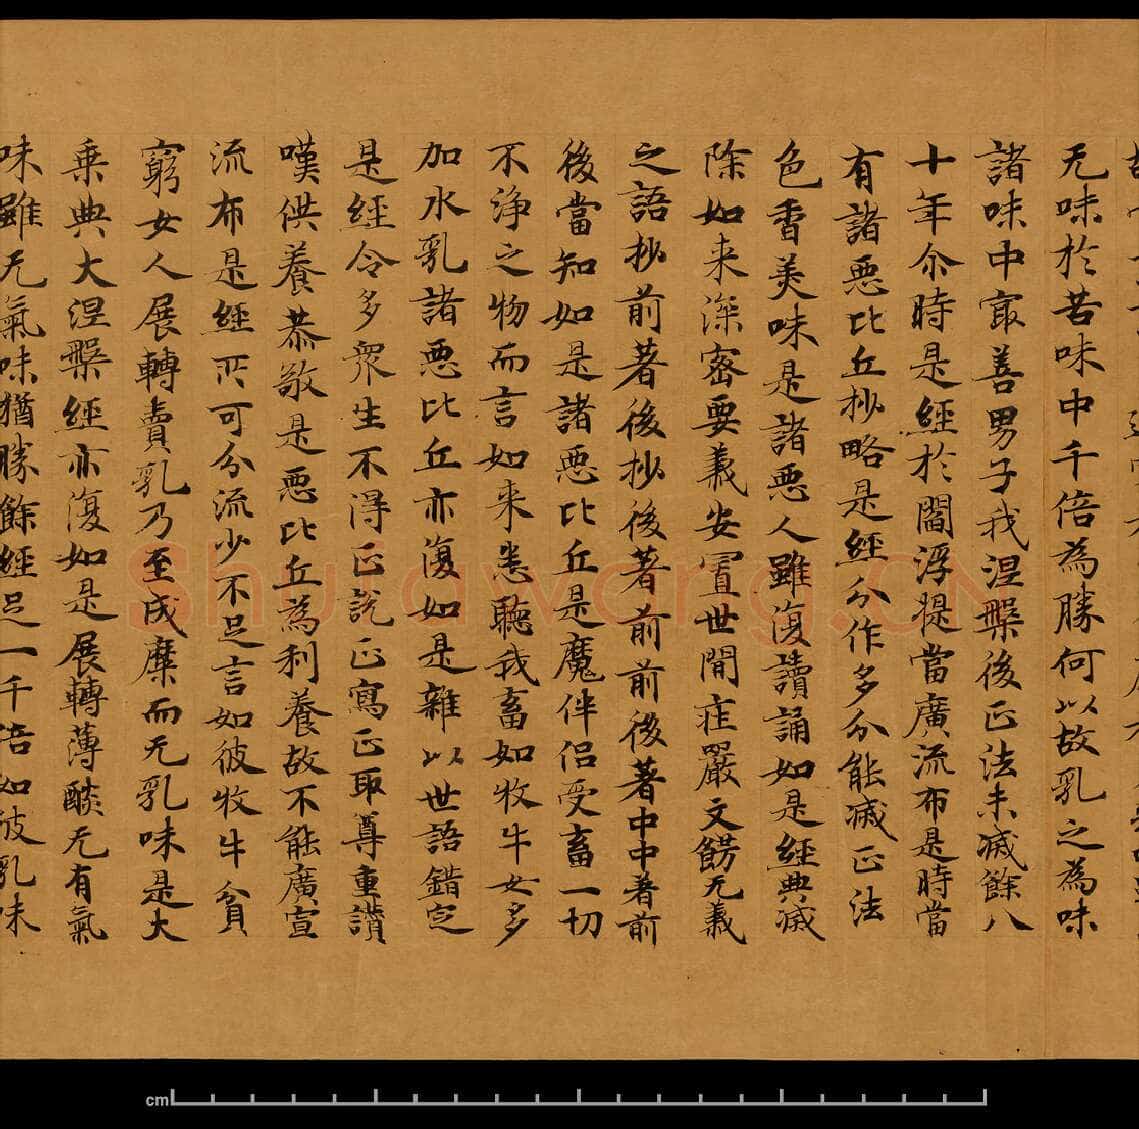 无味於苦味中千倍為勝何以故乳之為味
諸味中㝡善男子我涅槃後正法未滅餘八
十年尒時是經於閻浮提當廣流布是時當
有諸惡比丘抄略是經分作多分能滅正法
色香美味是諸惡人雖復讀誦如是經典滅
除如来深密要義安置世間庄嚴文餝无義
之語抄前著後抄後著前前後著中中著前
後當知如是諸惡比丘是魔伴侶受畜一切
不淨之物而言如来悉聽我畜如牧牛女多
加水乳諸惡比丘亦復如是雜以世語錯定
是經令多衆生不得正說正寫正取尊重讃
嘆供養恭敬是惡比丘為利養故不能廣宣
流布是經所可分流少不足言如彼牧牛貧
窮女人展轉賣乳乃至成糜而无乳味是大
乗典大涅槃經亦復如是展轉薄醈无有氣
味雖无氣味猶勝餘經足一千倍如彼乳味
Shufawang.CN
cm